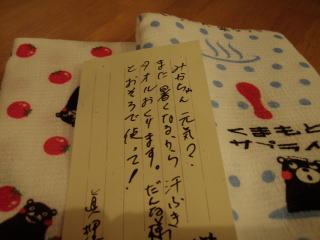 みかちゃん 元気?
また暑くなるから 汗ふき
タオルおくります。だんな様
とおそろで使って!
くまもと
サプライ